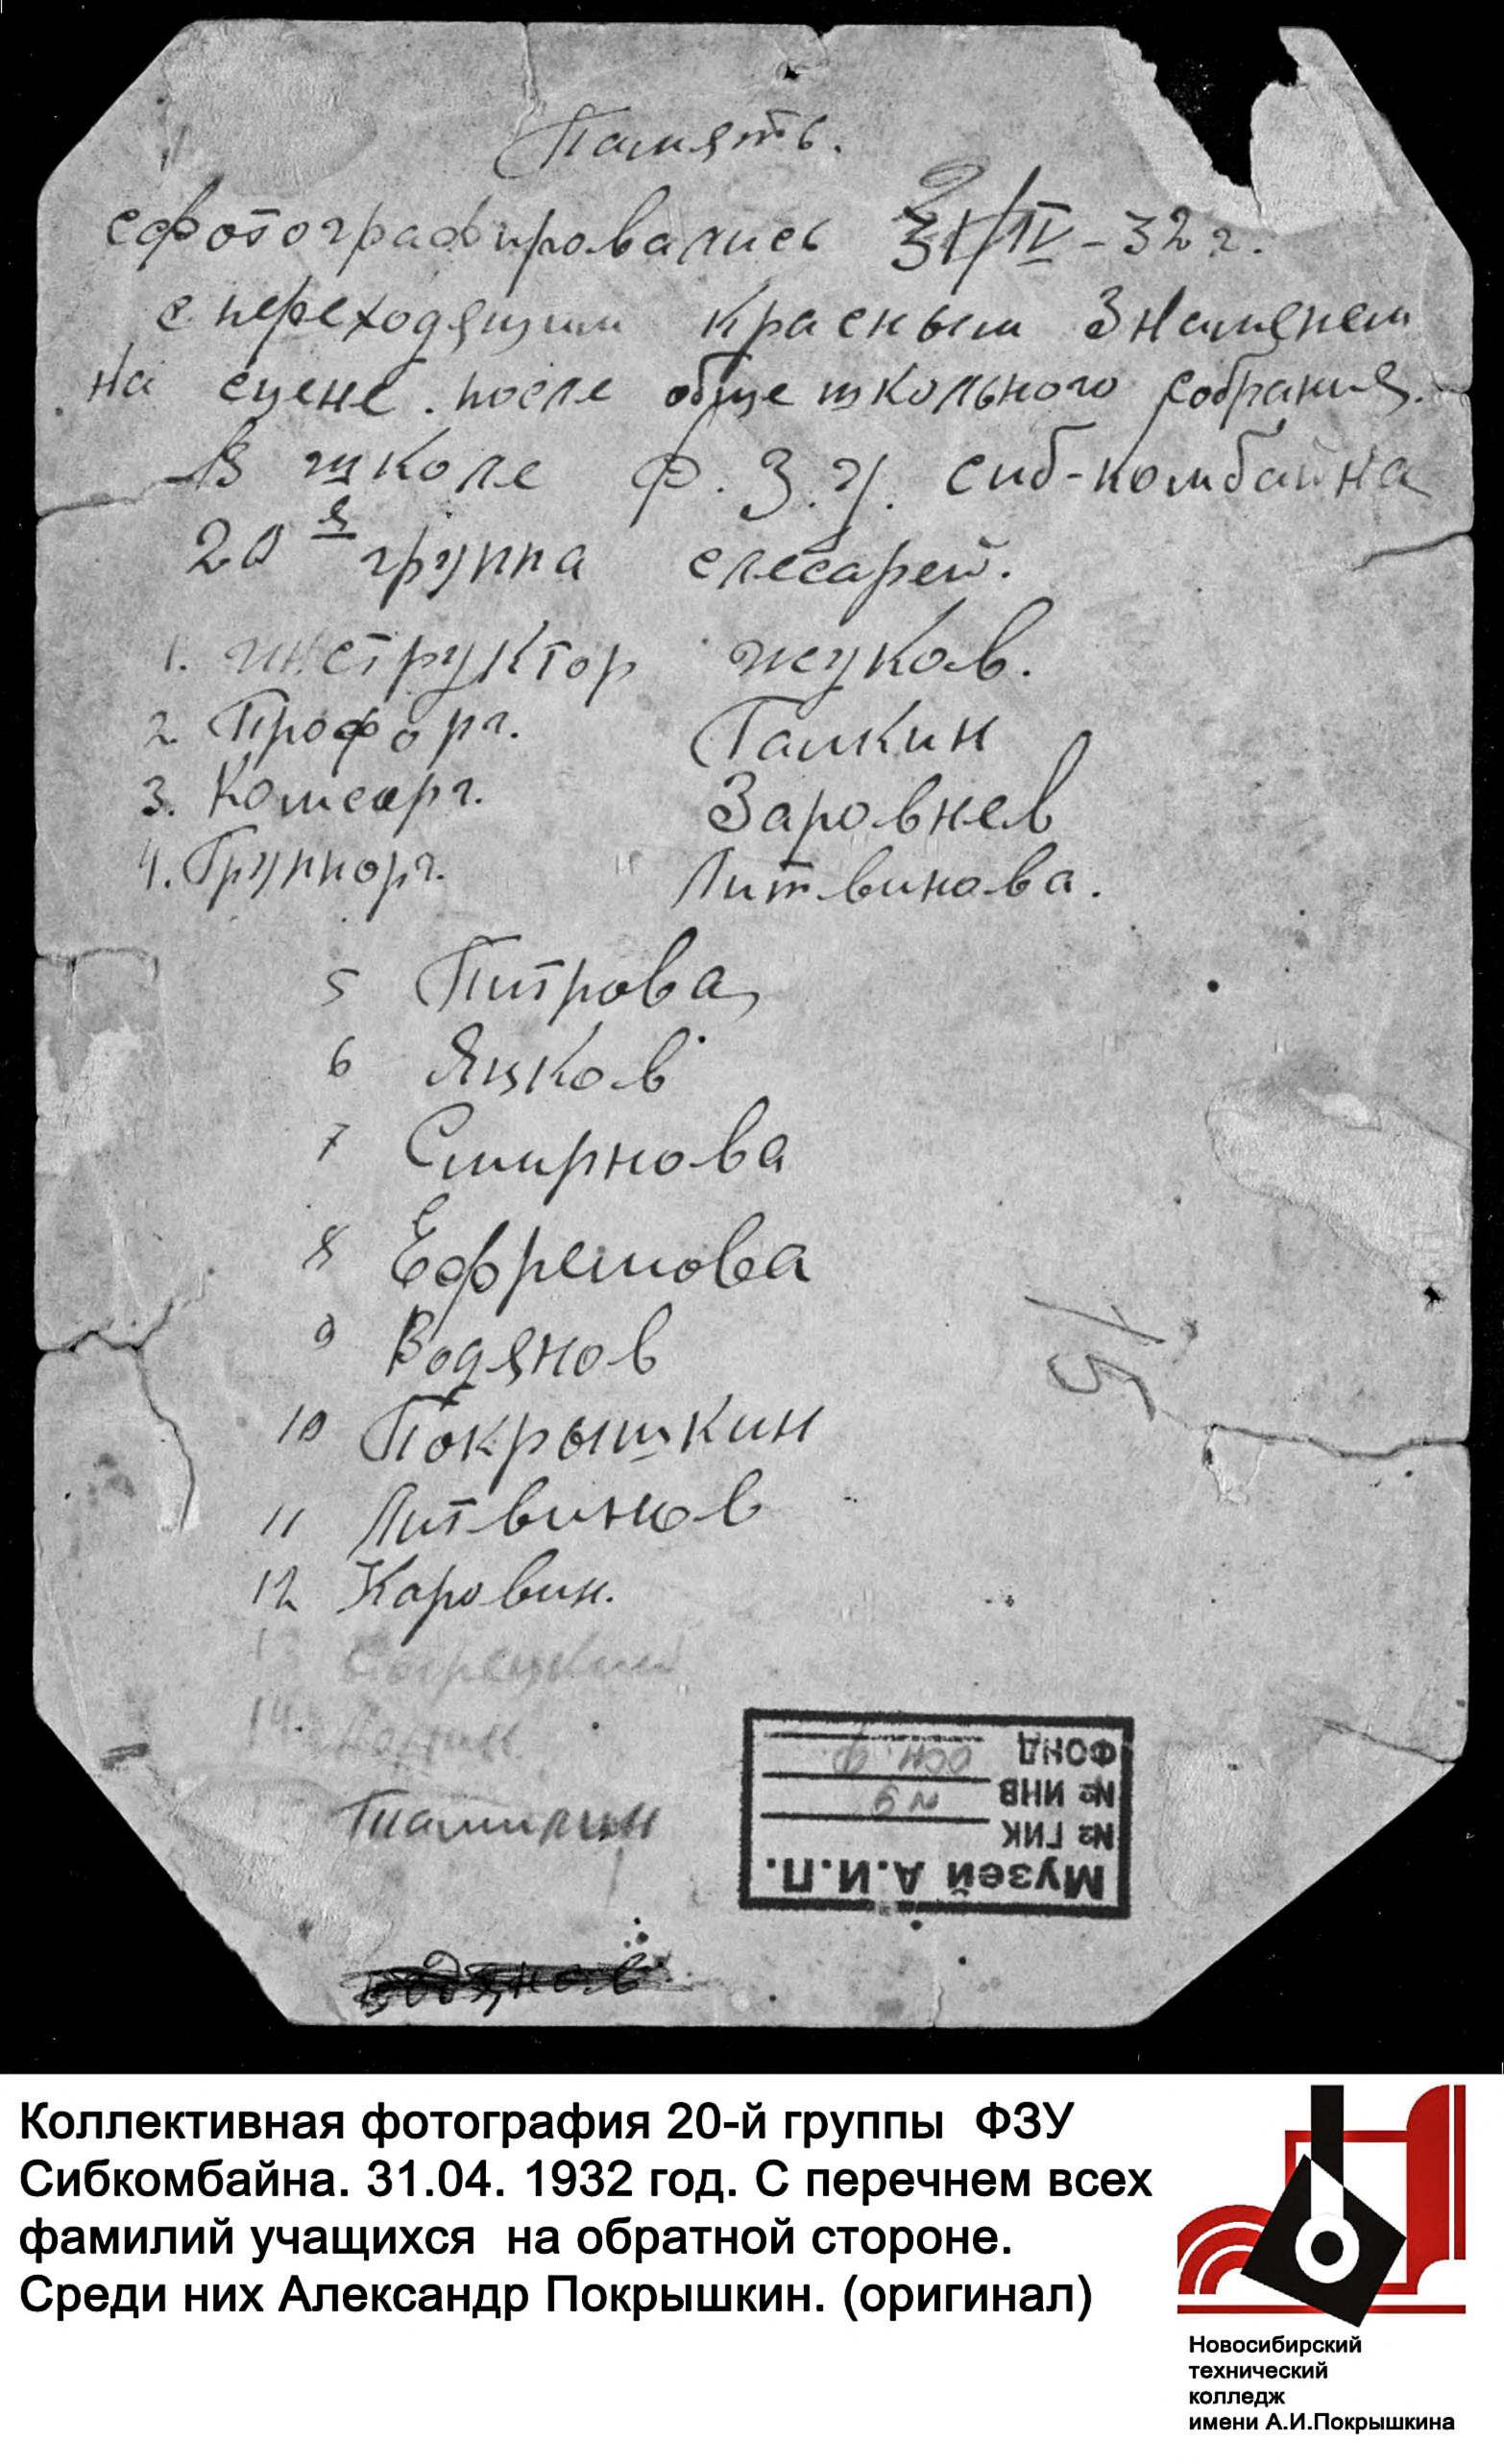 Память.
сфотографировались 31/IV-32 г.
с переходящим красным Знаменем
на сцене. после обще школьного собрания.
В школе Ф.З.У. сиб-комбайна
20 я группа слесарей.
1. инструктор жуков.
2 Профорг. Галкин
3. Комсорг. Заровнев
4. Группорг. " Литвинова.
5 Питрова
6 Яцков
7 Смирнова
8 Ефремова
9 Водянов
10 Покрышкин
11 Литвинов
12 Каровин.
13
14.
15
ФОНД осн. ф.
№ ИНВ
№ ГИК
Музей А.И.П.
Водянов
Коллективная фотография 20-й группы ФЗУ
Сибкомбайна. 31.04. 1932 год. С перечнем всех
фамилий учащихся на обратной стороне.
Среди них Александр Покрышкин. (оригинал)
Новосибирский
технический
колледж
имени А.И.Покрышкина